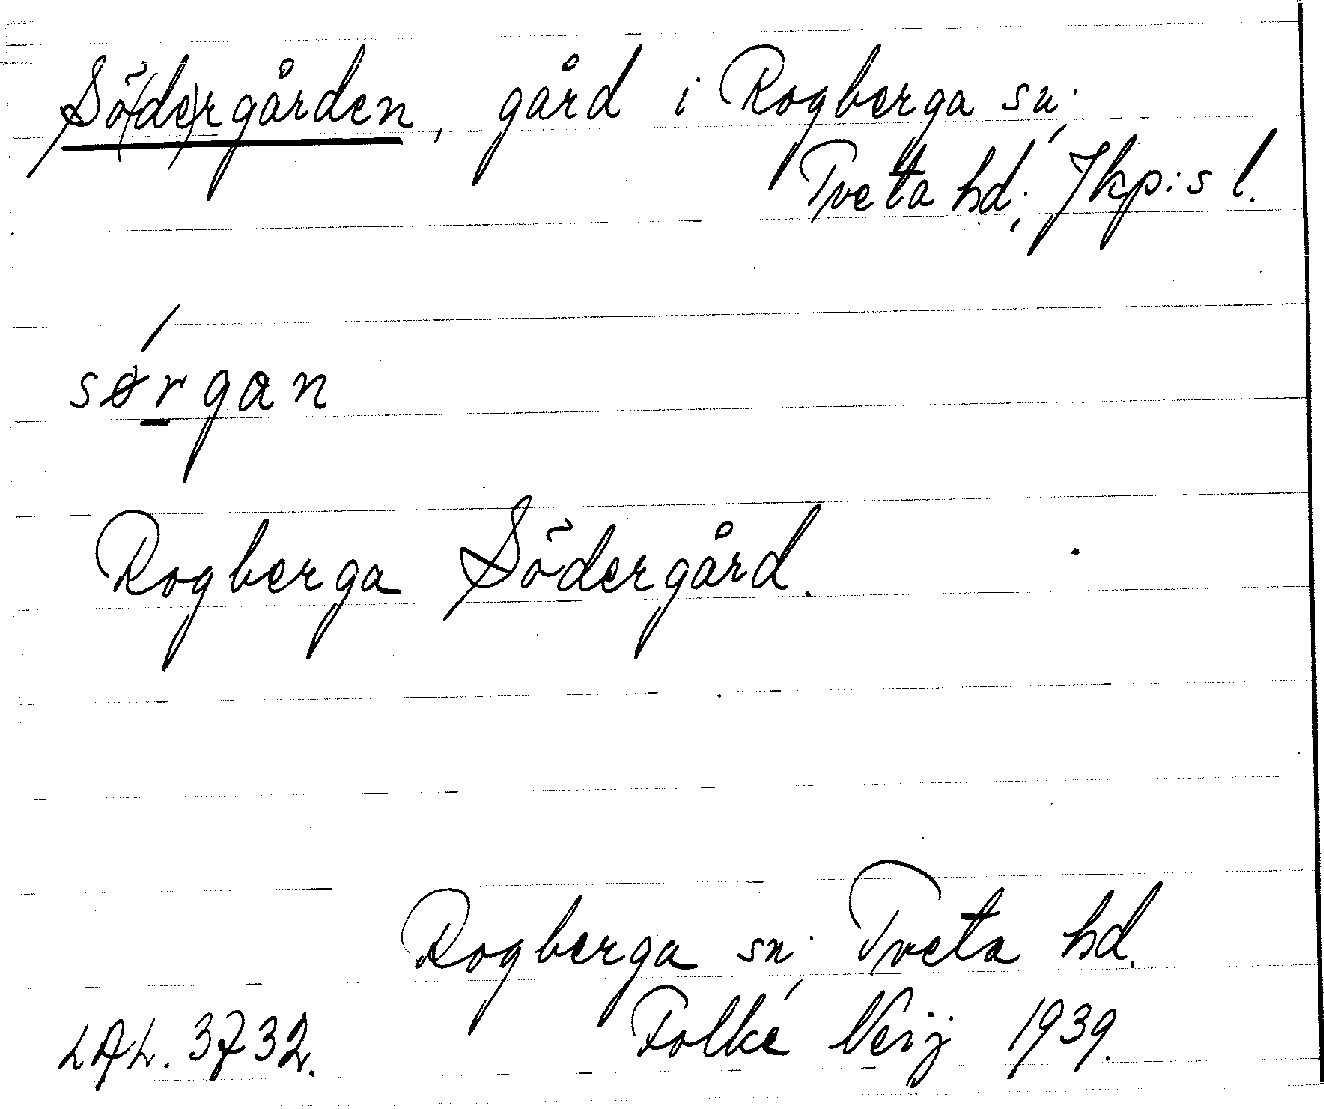 Sö(de)rgården, gård i Rogberga sn;
Tveta hd; Jkp:s l.
sørgan
Rogberga Södergård.
Rogberga sn; Tveta hd.
LAL. 3732. Folke Neij 1939.